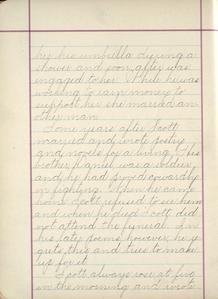 her his umbrella during a
shower and soon after was
engaged to her. While he was
working to earn money to
support her she married an
other man.
Some years after Scott
married and wrote poetry
and novels for a living. His
brother Daniel was a soldier,
and he had proved cowardly
in fighting. When he came
home Scott refused to see him
and when he died Scott did
not attend the funeral. In
his late poems however he re
grets this and tries to make
up for it.
Scott always rose at five
in the morning and wrote